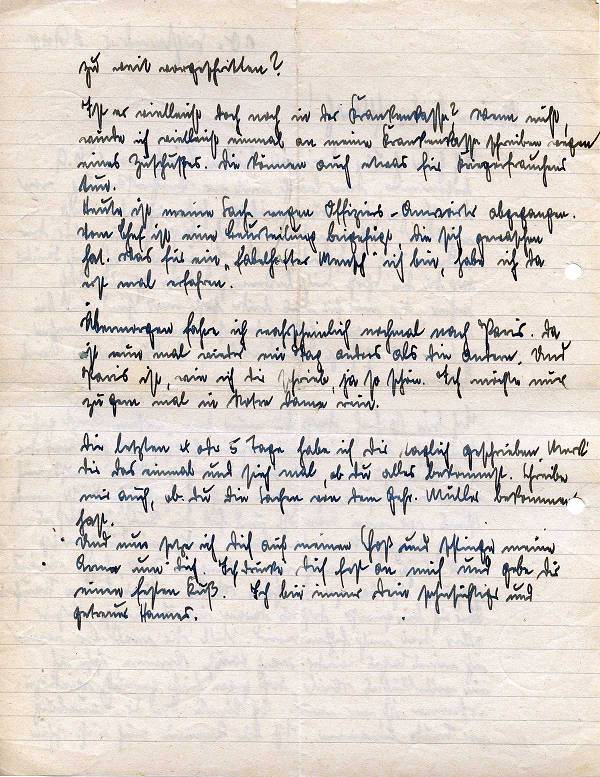 zu weit vorgeschritten?
Ist er vielleicht doch noch in der Krankenkasse? Wenn nicht,
würde ich vielleicht einmal an meine Krankenkasse schreiben wegen
eines Zuschusses. Die können auch etwas für
tun.
Heute ist meine Sache wegen Offiziers-Anwärter abgegangen.
Vom Chef ist eine Beurteilung beigefügt, die sich gewaschen
hat. Was für ein "fabelhafter Mensch" ich bin, habe ich da
erst mal erfahren.
Übermorgen fahre ich wahrscheinlich nochmal nach Paris. Da
ist nun mal wieder ein Tag anders als die andern. Und
Paris ist, wie ich dir schrieb, ja so schön. Ich möchte nur
zu gern mal in Notre Dame rein.
Die letzten 4 oder 5 Tage habe ich dir täglich geschrieben. Merk
dir das einmal und sieh mal, ob du alles bekommst. Schreibe
mir auch, ob du die Sachen von dem Gefr. Müller bekommen
hast.
Und nun setze ich dich auf meinen Schoß und schlinge meine
Arme um dich. Ich drücke dich fest an mich und gebe dir
einen festen Kuß. Ich bin immer dein sehnsüchtiger und
getreuer Hannes.